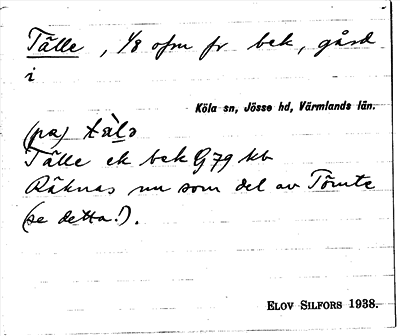 Tälle, 1/8 ofm fr bek, gård
i
Köla sn, Jösse hd, Värmlands län.
(pa) tàlə
Tälle ek bek G79 kb
Räknas nu som del av Tömte
(se detta!).
ELOV SILFORS 1938.